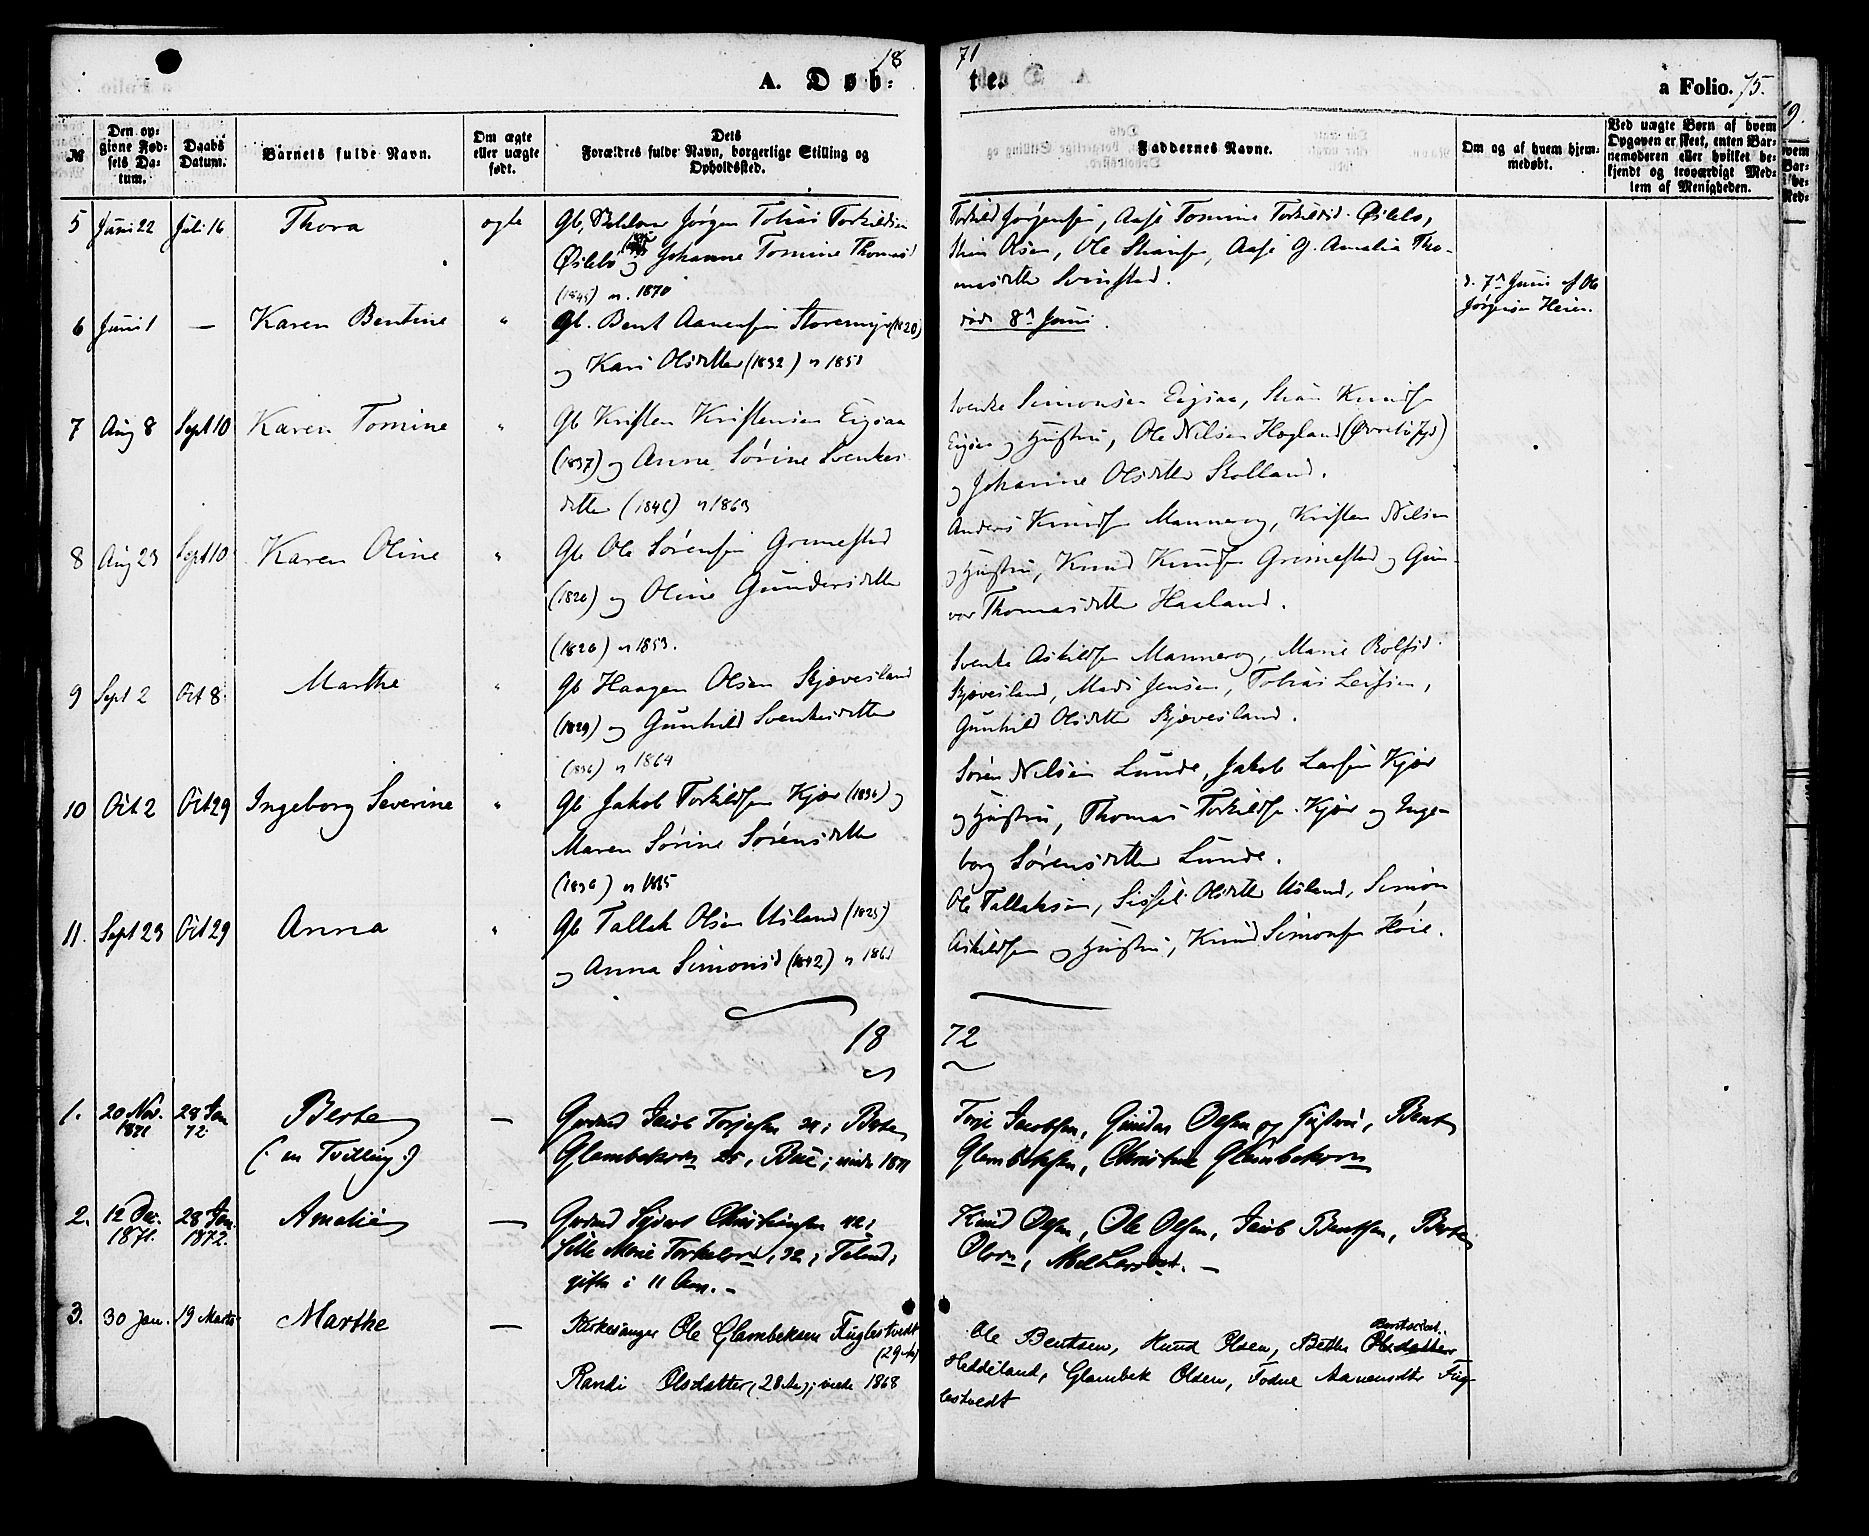 18 71
A. Døb: tes a Folio. 75.
№
Den op-
givne Fød-
sels Da-
tum.
Daabs
Datum.
Barnets fulde Navn.
Om ægte
eller uægte
født.
Dets
Forældres fulde Navn, borgerlige Stilling og
Opholdssted.
Faddernes Navne.
Om og af hvem hjem-
medøbt.
Ved uægte Børn af hvem
Opgaven er skeet, enten Bar-
nemoderen eller hvilket be-
kjendt og troværdigt Med-
lem af Menigheden.
5 Juni 22 Juli 16 Thora ægte Gb. Jørgen Tobias Torkildsen
Øslebø og Johanne Tomine Thomasd
(1845) v. 1870
Torkild Jørgensen, Aase Tomine Torkildsd. Øslebø,
Olsen, Ole Stiansen, Aase G. Amalia Tho-
masdatter Svinstad.
6 Juni 1 — Karen Bentine " Gb. Bent Aanensen Storemyr (1820)
og Kari Olsdatter (1832) v 1851
døde 8d Juni.
d. 7d Juni af Ole
Jørgensen Heien.
7 Aug 8 Sept 10 Karen Tomine " Gb Kristen Kristensen Eigsaa
(1837) og Anne Sørine Svenkes
datter (1846) v 1863
Svenke Simonsen Eigsaa, Stian Knudsen
Eigsaa og Hustru, Ole Nilsen Hægland (Øvrebø Sgd)
og Johanne Olsdatter Skolland.
8 Aug 23 Sept 10 Karen Oline " Gb Ole Sørensen Grimestad
(1820) og Oline Gundersdatter
(1826) v 1853.
Anders Knudsen Mannerog, Kristen Nilsen
og Hustru, Knud Knudsen Grimestad og Gun-
vor Thomasdatter Haaland.
9 Sept 2 Oct 8. Marthe " Gb Haagen Olsen Skjævesland
(1829) og Gunhild Svenkesdatter
(1836) v 1864
Svenke Askildsen Mannerog, Marie Rolfsd.
Skjævesland, Mads Jensen, Tobias Leifsen,
Gunhild Olsdatter Skjævesland.
10 Oct 2 Oct 29 Ingeborg Severine " Gb Jakob Torkildsen Kjær (1836) og
Maren Sørine Sørensdatter
(1836) v 1865
Søren Nilsen Lunde, Jakob Larsen Kjær
og Hustru, Thomas Torkildsen Kjær og Inge-
borg Sørensdatter Lunde.
11. Sept 23 Oct 29 Anna " Gb Tallak Olsen Usland (1825)
og Anna Simonsd (1842) v 1861
Ole Tallaksen, Sissel Olsdatter Usland, Simon
Askildsen og Hustru, Knud Simonsen Høie.
18 72
1. 20 Nov. 1871 28 Jan 72 Berte
(: en Tvilling :)
— Grdmd Jacob Torjesen 31; Berte
Glambeksdn 25, Bue; viede 1871
Torje Jacobsen, Gunder Olsen og Hustru, Bent
Glambeksen, Christine Glambeksdn
2. 12 Dec. 1871. 28 Jan. 1872. Amalie — Grdmd Sivert Christiansen 42;
Gitle Marie Torkelsdn, 32;
gifte i 11 Aar. –
Knud Olsen, Ole Olsen, Jacob Bentsen, Berte
Olsdn,
3. 30 Jan. 19 Marts Marthe — Kirkesanger Ole Glambeksen Fuglestvedt
(29 Aar)
Randi Olsdatter, (28 Aar); viede 1868
Ole Bentsen, Knud Olsen, Bertha Bentsdat.
Heddeland, Glambek Olsen, Todne Aanensdtr Fug
lestvedt